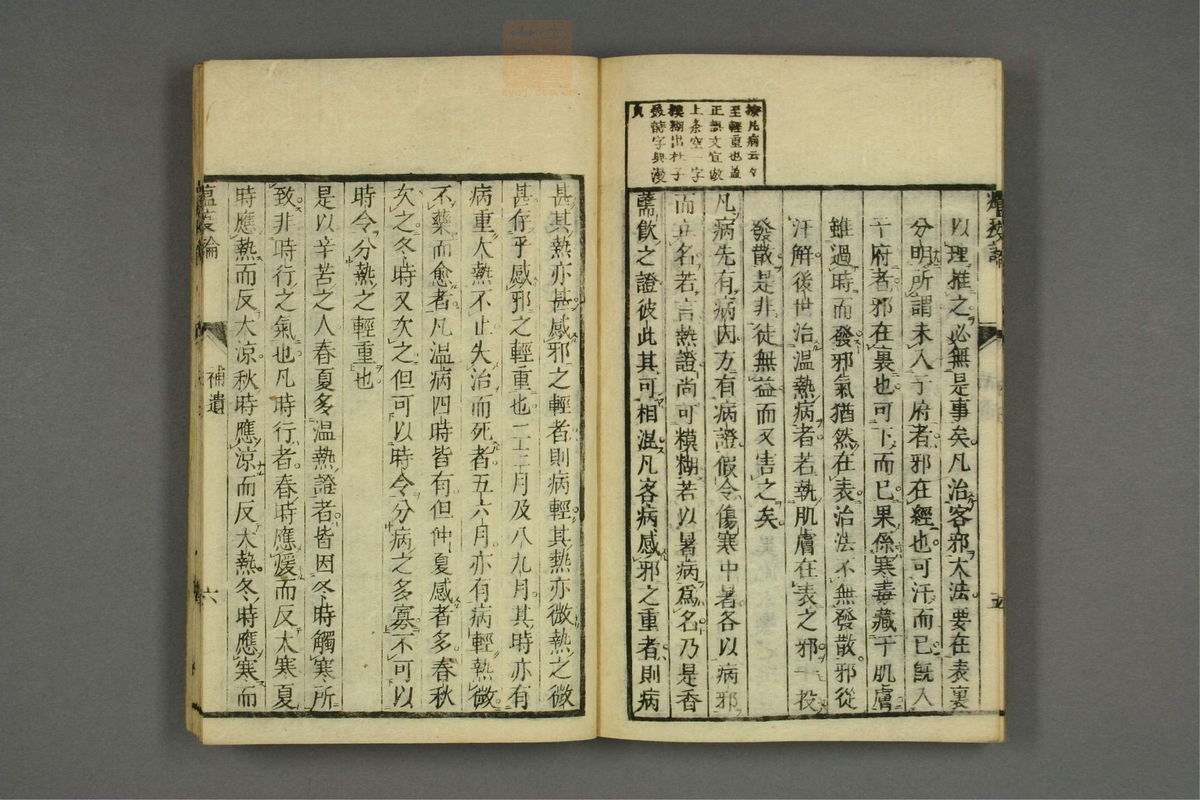 按凡病云々
至輕重也蓋
正誤文宜啟
上条空一字
模糊出杜子
美詩字典漫
貌
以理推之必無是事矣凡治客邪大法要在表裏
分明所謂未入于府者邪在經也可汗而已既入
于府者邪在裏也可下而已果係寒毒藏于肌膚
雖過時而發邪氣猶然在表治法不無發散邪從
汗解後世治温熱病者若執肌膚在表之邪一投
發散是非徒無益而又害之矣
凡病先有病因方有病證假令傷寒中暑各以病邪
而立名若言熱證尚可模糊若以暑病爲名乃是香
薷飲之證彼此其可相混凡客病感邪之重者則病
甚其熱亦甚感邪之輕者則病輕其熱亦微熱之微
甚存乎感邪之輕重也二三月及八九月其時亦有
病重大熱不止失治而死者五六月亦有病輕熱微
不藥而愈者凡温病四時皆有但仲夏感者多春秋
次之冬時又次之但可以時令分病之多寡不可以
時令分熱之輕重也
是以辛苦之人春夏多温熱證者皆因冬時觸寒所
致非時行之氣也凡時行者春時應煖而反大寒夏
時應熱而反大涼秋時應涼而反大熱冬時應寒而
瘟疫論
補遺
六